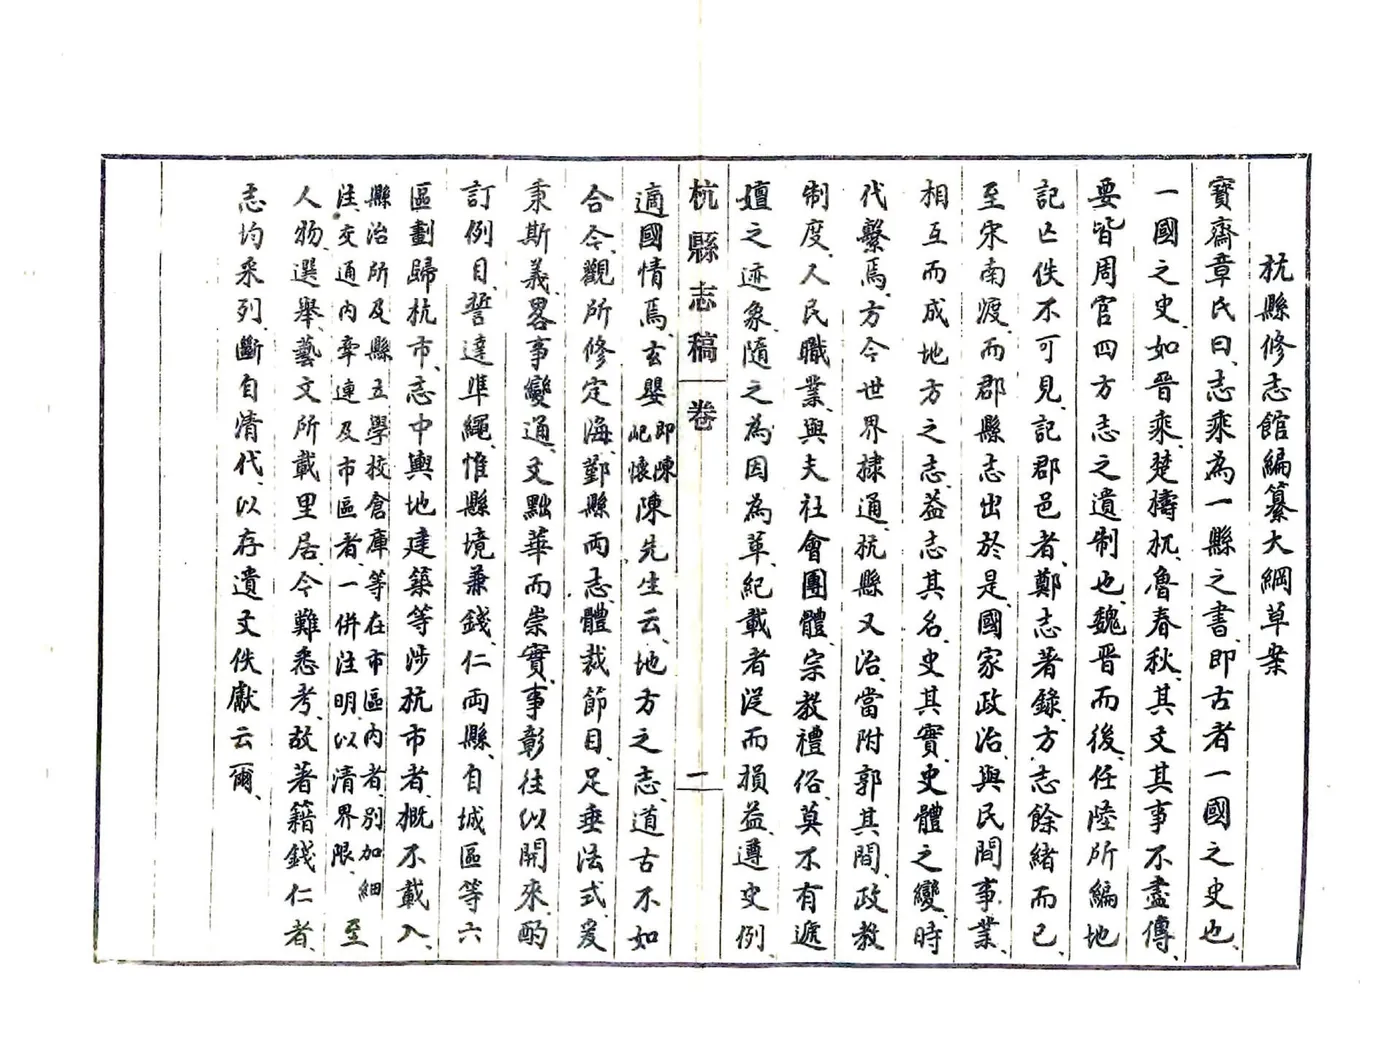 杭縣修志館編纂大綱草案
寶齋章氏曰、志乘為一縣之書、即古者一國之史也、
一國之史、如晉乘、楚檮杌、魯春秋、其文其事不盡傳、
要皆周官四方志之遺制也、魏晉而後、任陸所編地
記亡佚不可見、記郡邑者、鄭志著錄、方志餘緒而已、
至宋南渡、而郡縣志出、於是、國家政治、與民間事業、
相互而成地方之志、益志其名、史其實、史體之變、時
代繫焉、方今世界棣通、杭縣又治、當附郭其間、政教
制度、人民職業、與夫社會團體、宗教禮俗、莫不有遞
嬗之迹象、隨之為因為革、紀載者從而損益、遵史例
杭縣志稿 卷 一
適國情焉、玄嬰即陳屺懷陳先生云、地方之志、道古不如
合今、觀所修定海、鄞縣兩志、體裁節目、足垂法式、爰
秉斯義、畧事變通、文黜華而崇實、事彰往以開來、酌
訂例目、誓達準繩、惟縣境兼錢、仁兩縣、自城區等六
區劃歸杭市、志中輿地建築等涉杭市者、概不載入、
縣治所及縣立學校倉庫等在市區內者、別加細
注、交通內牽連及市區者、一併注明、以清界限、至
人物、選舉、藝文所載里居、今難悉考、故著籍錢仁者、
志均采列、斷自清代、以存遺文佚獻云爾、